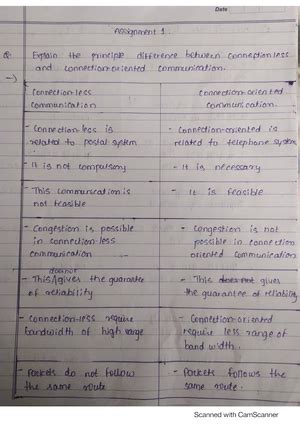 Date
Assignment 1
Q. Explain the principle difference between connectionless
and connection-oriented communication.
Connectionless
communication
Connection-oriented
communication.
- Connection-less is
related to postal system
- Connection-oriented is
related to telephone system
- It is not compulsory
- It is necessary
- This communication is
not feasible
- It is feasible
- Congestion is possible
in connection-less
communication
- Congestion is not
possible in connection
oriented communication
does not
- This gives the guarantee
of reliability
- This does not gives
the guarantee of reliability
- Connection-less require
bandwidth of high range
- Connection-oriented
require less range of
band width.
- Packets do not follow
the same route
- Packets follows the
same route.
Scanned with CamScanner